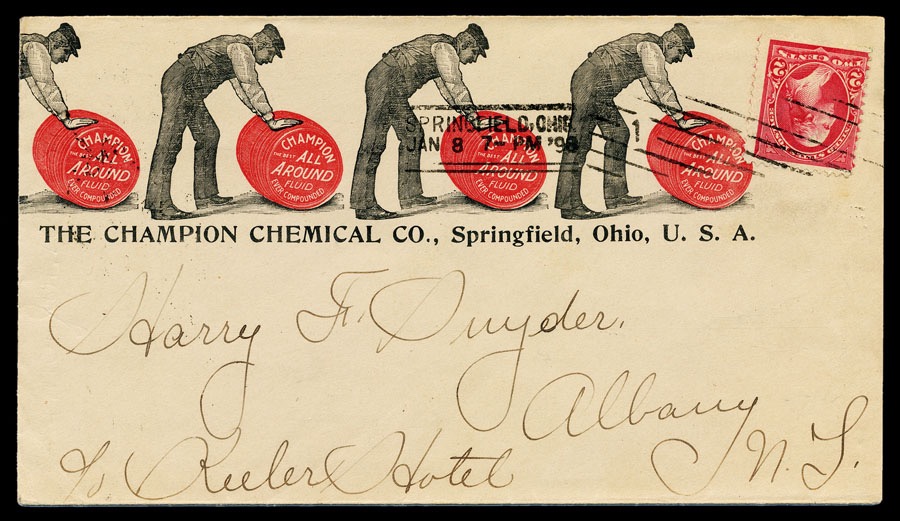 CHAMPION
THE BEST ALL
AROUND
FLUID
EVER COMPOUNDED
CHAMPION
THE BEST ALL
AROUND
FLUID
EVER COMPOUNDED
CHAMPION
THE BEST ALL
AROUND
FLUID
EVER COMPOUNDED
CHAMPION
ALL
AROUND
FLUID
EVER COMPOUNDED
SPRINGFIELD, OHIO
JAN 8 7- PM '98
1
2 2
THE CHAMPION CHEMICAL CO., Springfield, Ohio, U. S. A.
Harry F. Snyder.
Albany
c/o Keeler Hotel N. Y.